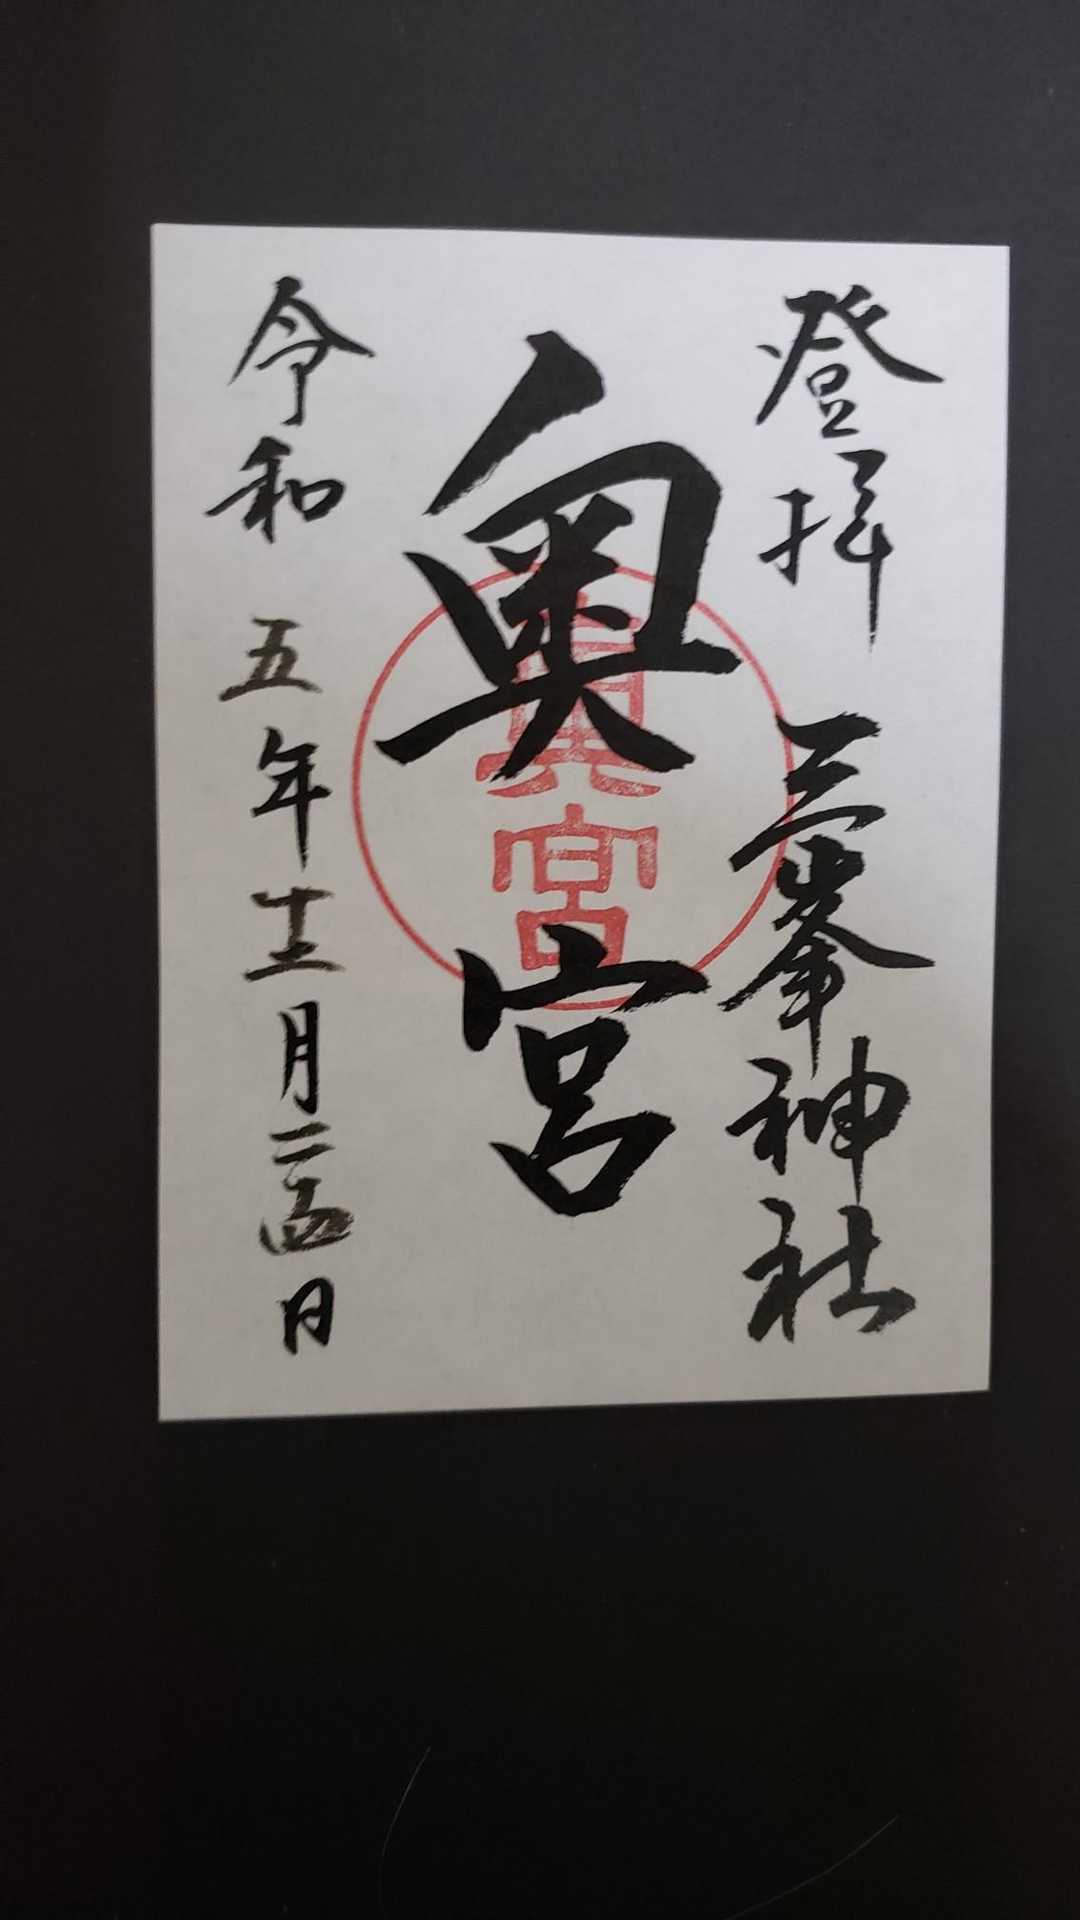 登拝 三峯神社
奥宮
奥宮
令和五年十二月二十四日